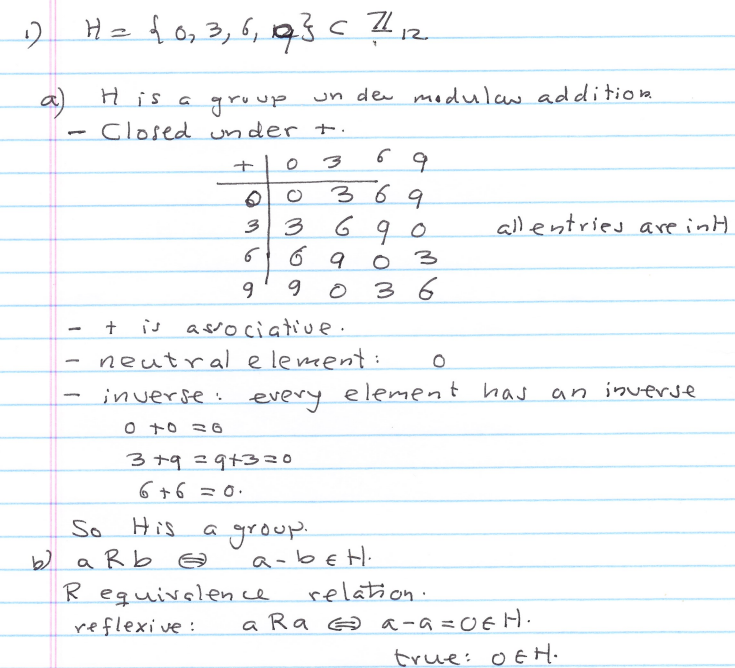 1) H = {0, 3, 6, 9} ⊂ ℤ₁₂
a) H is a group under modular addition
- Closed under +.
+ | 0 3 6 9
0 | 0 3 6 9
3 | 3 6 9 0 all entries are in H
6 | 6 9 0 3
9 | 9 0 3 6
- + is associative.
- neutral element: 0
- inverse: every element has an inverse
0 + 0 = 0
3 + 9 = 9 + 3 = 0
6 + 6 = 0.
So H is a group.
b) a R b ⇔ a - b ∈ H.
R equivalence relation.
reflexive: a R a ⇔ a - a = 0 ∈ H.
true: 0 ∈ H.